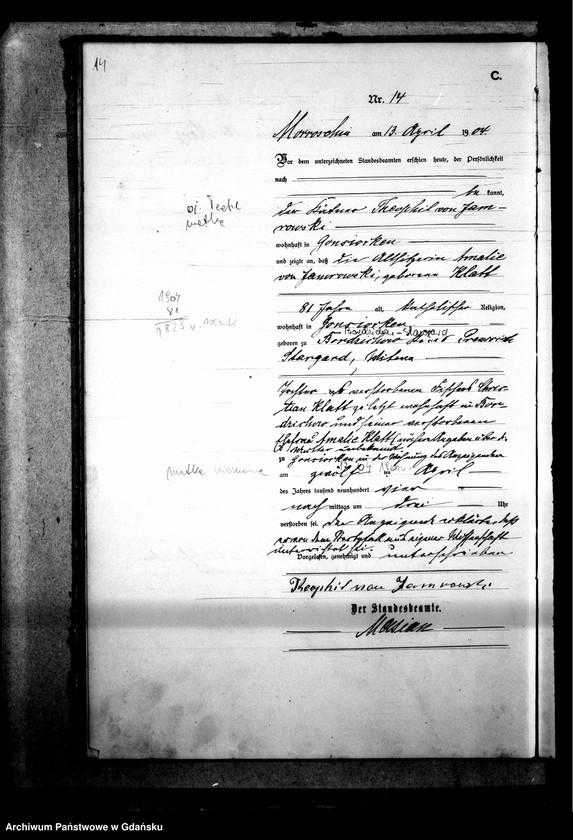 14
C.
Nr. 14
Morroschin am 13. April 1904.
Vor dem unterzeichneten Standesbeamten erschien heute, der Persönlichkeit
nach
be kannt,
der Theophil von Jam-
rowski
wohnhaft in Gonsiorken
und zeigte an, daß die Altsitzerin Amalie
von Jamrowski, geborene Klatt
1904
81
1823
81 Jahre alt, katholischer Religion,
wohnhaft in Gonsiorken
geboren zu Kreis Preussisch
Stargard, Witwe
Tochter des verstorbenen Fischers Chris-
tian Klatt zuletzt wohnhaft in Bor-
dzichow und seiner verstorbenen
Ehefrau Amalie Klatt (nähere Angaben über d.
Mutter unbekannt)
zu Gonsiorken in der Wohnung des Anzeigenden
matka nieznana
am zwölften April
des Jahres tausend neunhundert vier
nach mittags um drei Uhr
verstorben sei. Der Anzeigende erklärte, daß
er von dem Sterbefall aus eigener Wissenschaft
unterrichtet sei.
Vorgelesen, genehmigt und unterschrieben
Theophil von Jamrowski
Der Standesbeamte.
Archiwum Państwowe w Gdańsku